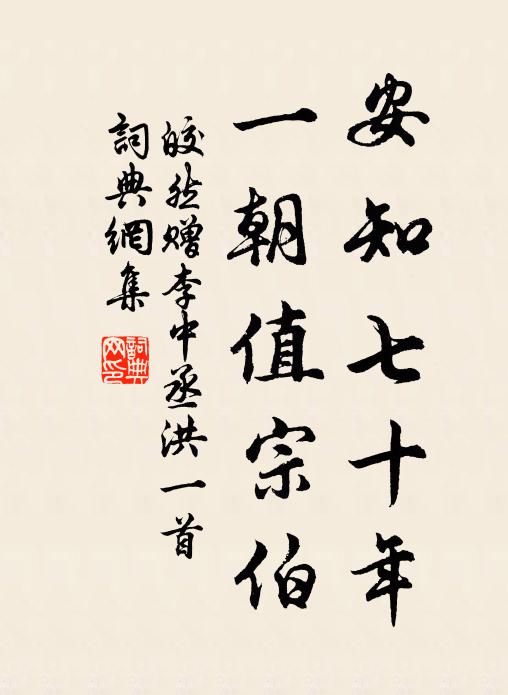 安知七十年
一朝值宗伯
皎然赠李中丞洪一首
詞典網集
詞典网印